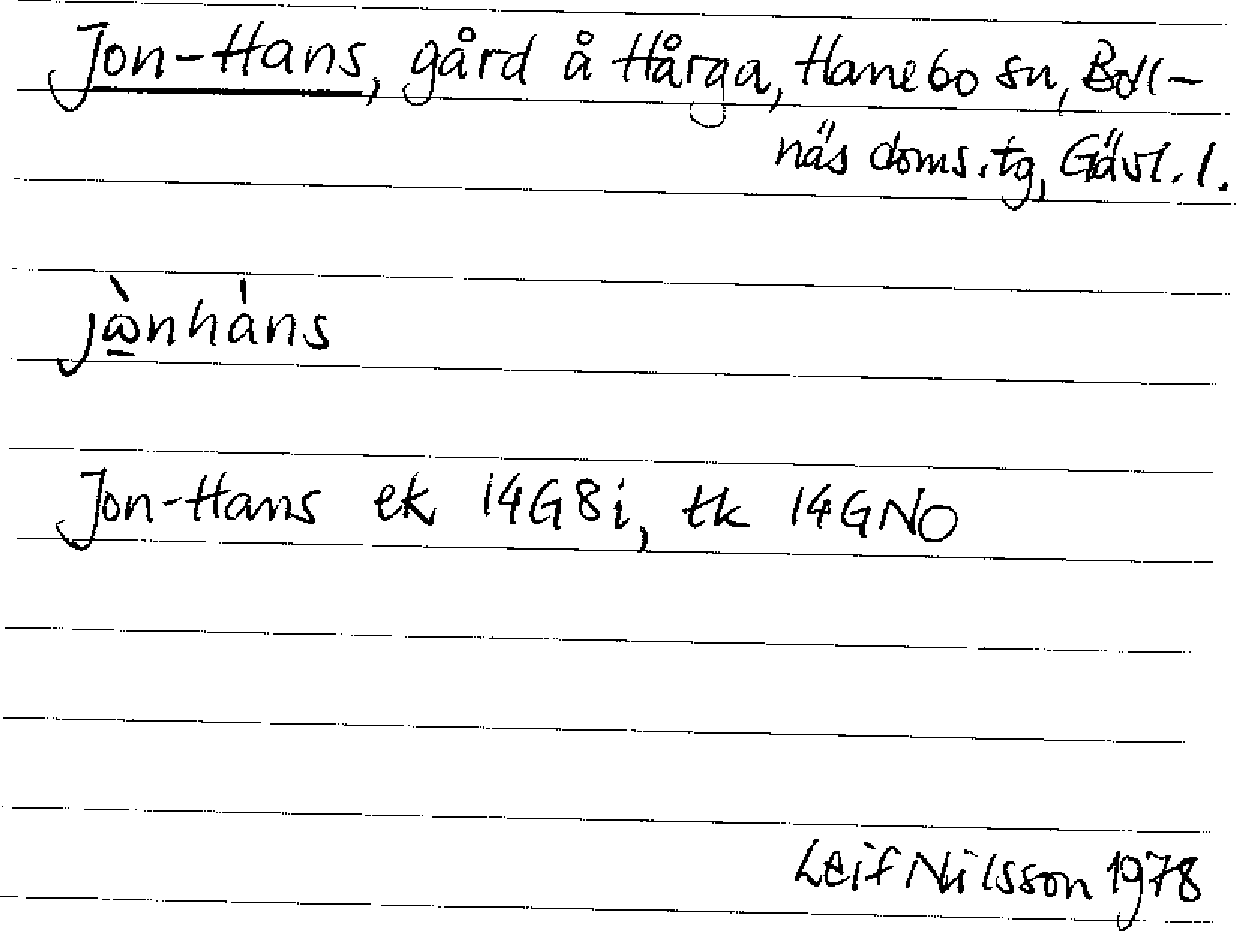 Jon-Hans, gård å Hårga, Hanebo sn, Boll-
näs doms.tg, Gävl.l.
jὼ̲nhȧns
Jon-Hans ek 14G8i, tk 14GNO
Leif Nilsson 1978